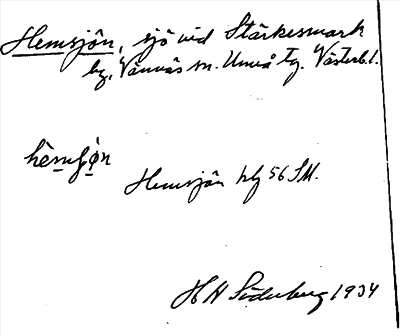 Hemsjön, sjö vid Stärkesmark
by, Vännäs sn. Umeå tg. Västerb. l.
Hemsjön hly 56 SM.
H H Söderberg 1934